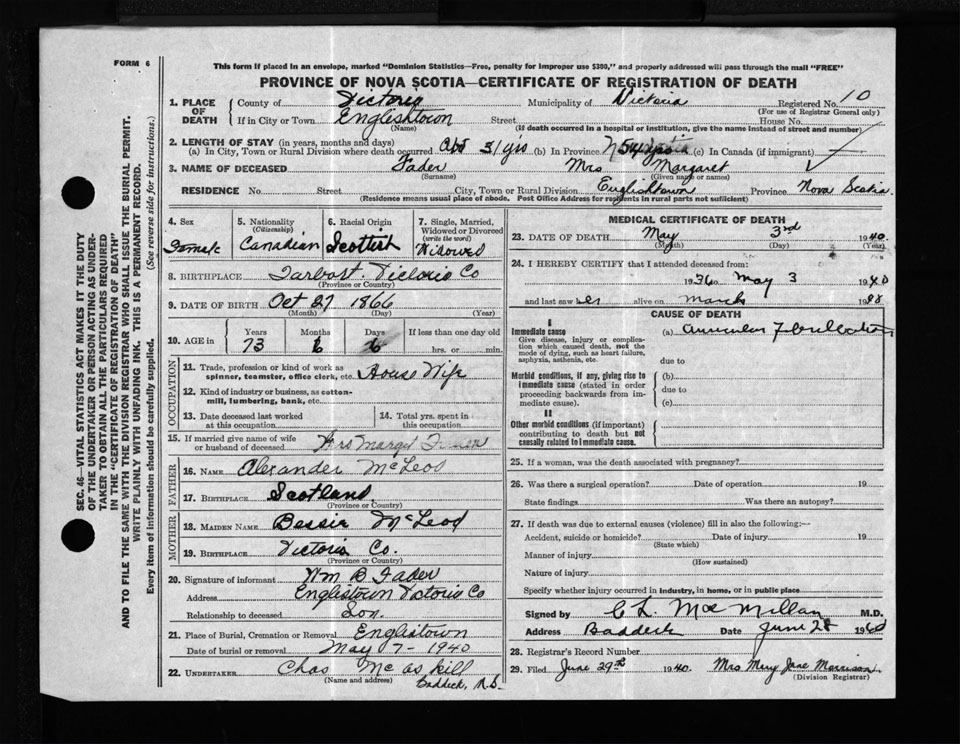 FORM 6
This form if placed in an envelope, marked "Dominion Statistics—Free, penalty for improper use $300," and properly addressed will pass through the mail "FREE"
PROVINCE OF NOVA SCOTIA—CERTIFICATE OF REGISTRATION OF DEATH
1. PLACE OF DEATH County of Victoria Municipality of Victoria Registered No. 10
(For use of Registrar General only)
If in City or Town Englishtown Street House No.
(Name) (If death occurred in a hospital or institution, give name instead of street and number)
2. LENGTH OF STAY (in years, months and days)
(a) In City, Town or Rural Division where death occurred Abt 51 yrs (b) In Province (c) In Canada (if immigrant)
3. NAME OF DECEASED Fader Mrs Margaret
(Surname) (Given name or names)
RESIDENCE No. Street City, Town or Rural Division Englishtown Province Nova Scotia.
(Residence means usual place of abode. Post Office Address for residents in rural parts not sufficient)
4. Sex Female
5. Nationality (Citizenship) Canadian
6. Racial Origin Scottish
7. Single, Married, Widowed or Divorced (write the word) Widowed
8. BIRTHPLACE Tarbost. Victoria Co
(Province or Country)
9. DATE OF BIRTH Oct 27 1866
(Month) (Day) (Year)
10. AGE in Years 73 Months 6 Days 6 If less than one day old hrs. or min.
OCCUPATION
11. Trade, profession or kind of work as spinner, teamster, office clerk, etc. House Wife
12. Kind of industry or business, as cotton-mill, lumbering, bank, etc.
13. Date deceased last worked at this occupation
14. Total yrs. spent in this occupation
15. If married give name of wife or husband of deceased Mrs Margret Fader
FATHER
16. NAME Alexander McLeod
17. BIRTHPLACE Scotland.
(Province or Country)
MOTHER
18. MAIDEN NAME Bessie McLeod
19. BIRTHPLACE Victoria Co.
(Province or Country)
20. Signature of informant Wm B Fader
Address Englistown Victoria Co
Relationship to deceased Son.
21. Place of Burial, Cremation or Removal Englistown
Date of burial or removal May 7 - 1940
22. UNDERTAKER Chas McAskill
(Name and address) Baddeck, N.S.
MEDICAL CERTIFICATE OF DEATH
23. DATE OF DEATH May 3rd 1940
(Month) (Day) (Year)
24. I HEREBY CERTIFY that I attended deceased from:
1936 May 3 1940
and last saw her alive on March 19
CAUSE OF DEATH
I
Immediate cause (a) Auricular Fibrillation
Give disease, injury or complication which caused death, not the mode of dying, such as heart failure, asphyxia, asthenia, etc. due to
Morbid conditions, if any, giving rise to immediate cause (stated in order proceeding backwards from immediate cause). (b) due to (c)
II
Other morbid conditions (if important) contributing to death but not causally related to immediate cause.
25. If a woman, was the death associated with pregnancy?
26. Was there a surgical operation? Date of operation 19
State findings Was there an autopsy?
27. If death was due to external causes (violence) fill in also the following:—
Accident, suicide or homicide? Date of injury 19
(State which)
Manner of injury
(How sustained)
Nature of injury
Specify whether injury occurred in industry, in home, or in public place
Signed by C L MacMillan M.D.
Address Baddeck Date June 28 19
28. Registrar's Record Number
29. Filed June 29th 1940. Mrs Mery Jane Morrison
(Division Registrar)
SEC. 46—VITAL STATISTICS ACT MAKES IT THE DUTY
OF THE UNDERTAKER OR PERSON ACTING AS UNDER-
TAKER TO OBTAIN ALL THE PARTICULARS REQUIRED
IN THE "CERTIFICATE OF REGISTRATION OF DEATH"
AND TO FILE THE SAME WITH THE DIVISION REGISTRAR WHO SHALL ISSUE THE BURIAL PERMIT.
WRITE PLAINLY WITH UNFADING INK. THIS IS A PERMANENT RECORD.
Every item of Information should be carefully supplied. (See reverse side for instructions.)